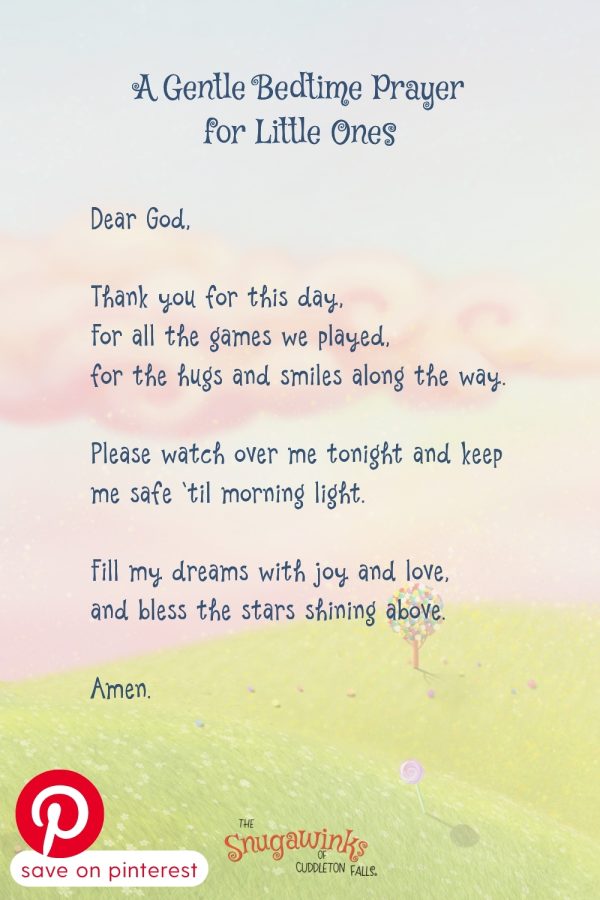 A Gentle Bedtime Prayer
for Little Ones
Dear God,
Thank you for this day,
For all the games we played,
for the hugs and smiles along the way.
Please watch over me tonight and keep
me safe ‘til morning light.
Fill my dreams with joy and love,
and bless the stars shining above.
Amen.
save on pinterest
THE
Snugawinks
OF
CUDDLETON FALLS